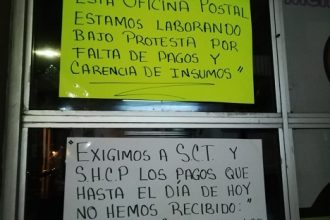 ESTA OFICINA POSTAL
ESTAMOS LABORANDO
BAJO PROTESTA POR
FALTA DE PAGOS Y
CARENCIA DE INSUMOS"
"EXIGIMOS A S.C.T. Y
S.H.C.P LOS PAGOS QUE
HASTA EL DÍA DE HOY
NO HEMOS RECIBIDO:"